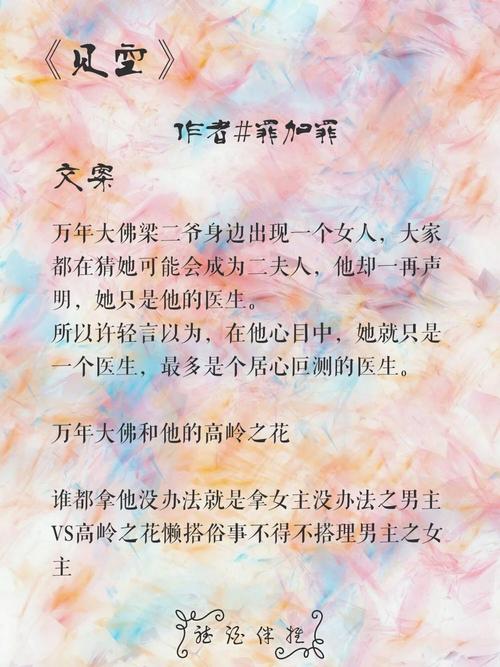 《见空》
作者#罪加罪
文案
万年大佛梁二爷身边出现一个女人，大家
都在猜她可能会成为二夫人，他却一再声
明，她只是他的医生。
所以许轻言以为，在他心目中，她就只是
一个医生，最多是个居心叵测的医生。
万年大佛和他的高岭之花
谁都拿他没办法就是拿女主没办法之男主
VS高岭之花懒搭俗事不得不搭理男主之女
主